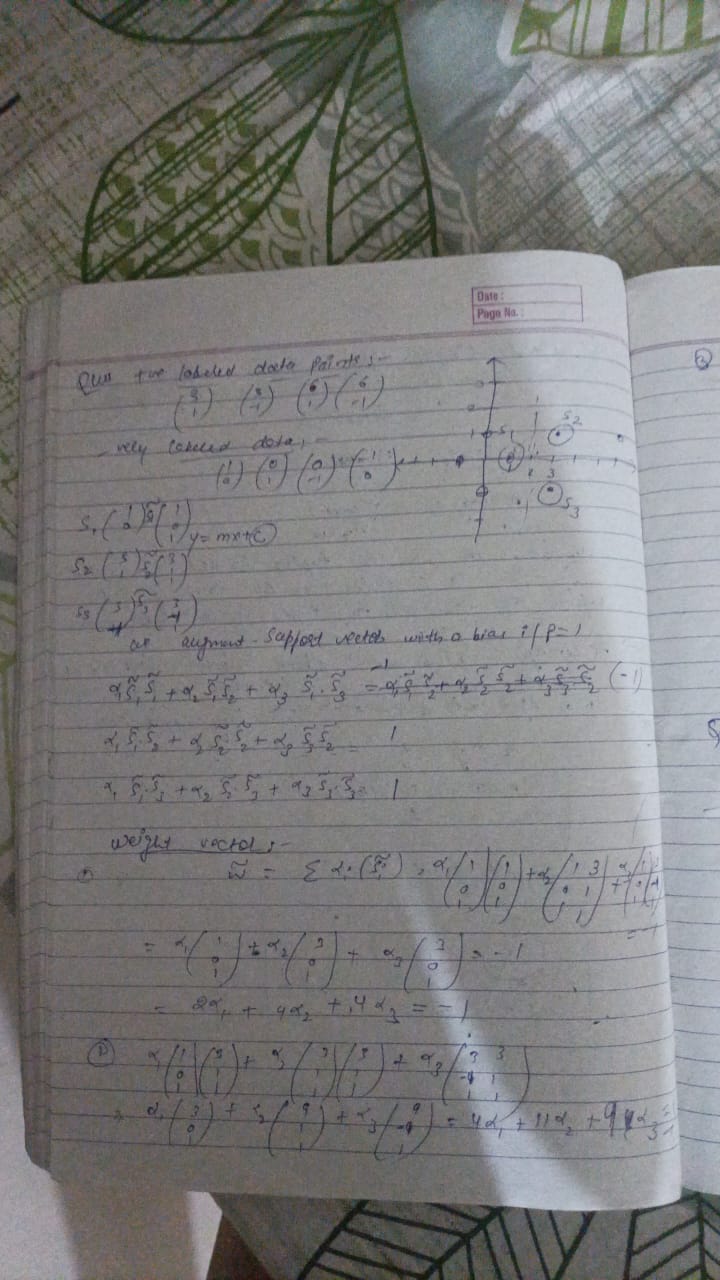 Date :
Page No. :
Ques +ve labeled data points :-
(3 1) (3 -1) (6 1) (6 -1)
-vely labeled data, -
(1 0) (0 1) (0 -1) (-1 0)
S1 (1 0) S̃1 (1 0 1) y = mx + C
S2 (3 1) S̃2 (3 1 1)
S3 S̃3
augment support vectors with a bias i/p = 1
α1 S̃1 · S̃1 + α2 S̃1 · S̃2 + α3 S̃1 · S̃3 = (-1)
α1 S̃1 · S̃2 + α2 S̃2 · S̃2 + α3 S̃3 · S̃2 = 1
α1 S̃1 · S̃3 + α2 S̃2 · S̃3 + α3 S̃3 · S̃3 = 1
weight vector :-
w̃ = Σ αi · (S̃i) = α1 (1 0 1)(1 0 1) + α2 (1 3 0 1 1 1) + α3
= -1
= α1 (1 0 1) + α2 (3 0 1) + α3 (3 0 1) = -1
= 2α1 + 4α2 + 4α3 = -1
② α1 (1 0 1)(3 1 1) + α2 (3 1 1)(3 1 1) + α3 (3 3 -1 1 1 1)
α1 + α2 (9 1 1) + α3 (9 -1 1) = 4α1 + 11α2 + 9α3
S1
S2
S3